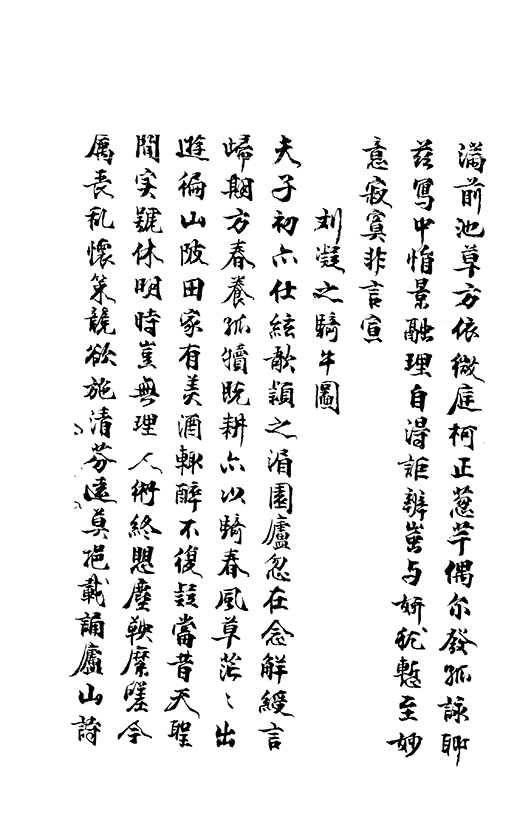 滿前池草方依微庭柯正蔥芊偶尔發孤詠聊
茲寫中悁景融理自得詎辨蚩与妍秖慙至妙
意寂寞非言宣
刘凝之騎牛圖
夫子初亦仕絃歌潁之湄園廬忽在念解綬言
歸期方春養孤犢既耕亦以騎春風草茫〻出
遊徧山陂田家有美酒輒醉不復疑當昔天聖
間实號休明時豈無理人術終思塵鞅縻嗟今
属喪乱懷策競欲施清芬遠莫挹載誦廬山詩